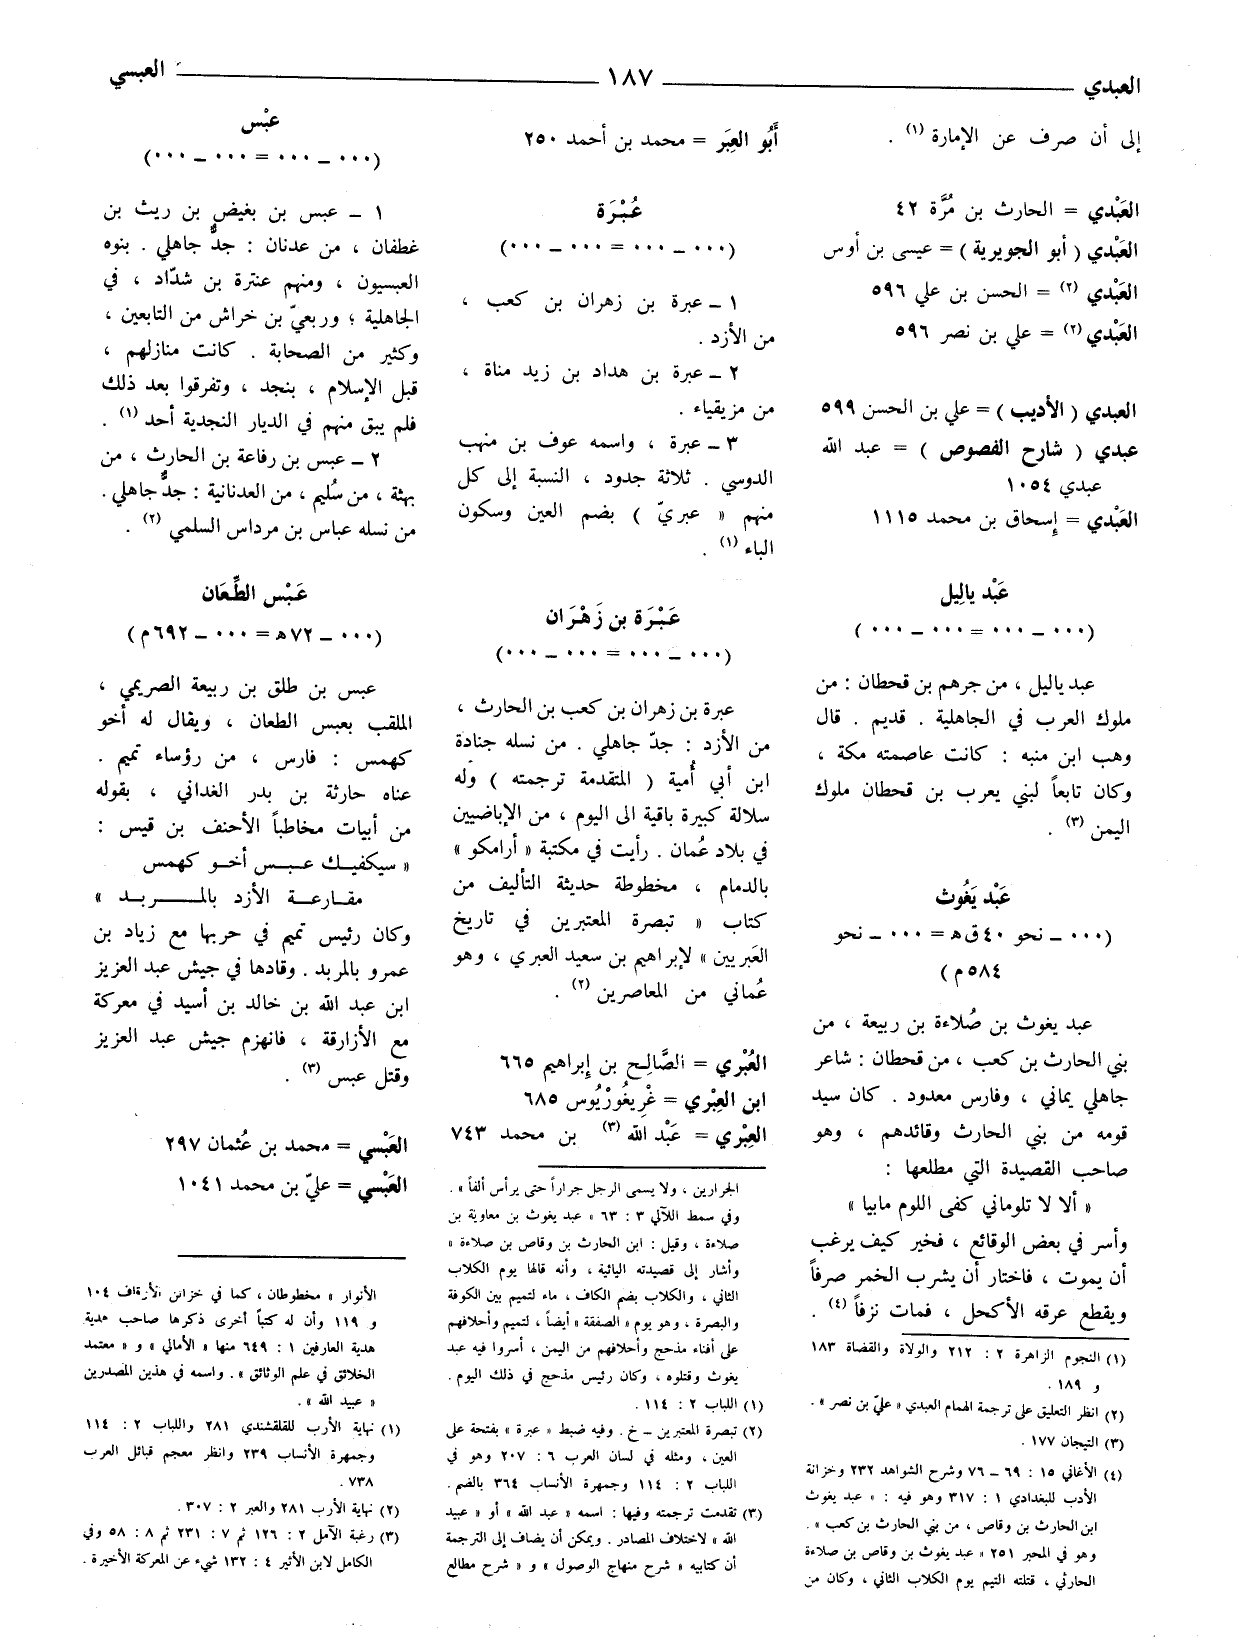 العبدي ١٨٧ العبسي
إلى أن صرف عن الإمارة (١) .
العَبْدي = الحارث بن مُرَّة ٤٢
العَبْدي ( أبو الجويرية ) = عيسى بن أوس
العَبْدي (٢) = الحسن بن علي ٥٩٦
العَبْدي (٢) = علي بن نصر ٥٩٦
العبدي ( الأديب ) = علي بن الحسن ٥٩٩
عبدي ( شارح الفصوص ) = عبد الله
عبدي ١٠٥٤
العَبْدي = إسحاق بن محمد ١١١٥
عَبْد ياليل
(٠٠٠ ــ ٠٠٠ = ٠٠٠ ــ ٠٠٠ )
عبد ياليل ، من جرهم بن قحطان : من
ملوك العرب في الجاهلية . قديم . قال
وهب ابن منبه : كانت عاصمته مكة ،
وكان تابعاً لبني يعرب بن قحطان ملوك
اليمن (٣) .
عَبْد يَغُوث
(٠٠٠ ــ نحو ٤٠ق ه = ٠٠٠ ــ نحو
٥٨٤م )
عبد يغوث بن صُلاءة بن ربيعة ، من
بني الحارث بن كعب ، من قحطان : شاعر
جاهلي يماني ، وفارس معدود . كان سيد
قومه من بني الحارث وقائدهم ، وهو
صاحب القصيدة التي مطلعها :
« ألا لا تلوماني كفى اللوم مابيا »
وأسر في بعض الوقائع ، فخير كيف يرغب
أن يموت ، فاختار أن يشرب الخمر صرفاً
ويقطع عرقه الأكحل ، فمات نزفاً (٤) .
(١) النجوم الزاهرة ٢ : ٢١٢ والولاة والقضاة ١٨٣
و ١٨٩ .
(٢) انظر التعليق على ترجمة الهمام العبدي « عليّ بن نصر » .
(٣) التيجان ١٧٧ .
(٤) الأغاني ١٥ : ٦٩ ــ ٧٦ وشرح الشواهد ٢٣٢ وخزانة
الأدب للبغدادي ١ : ٣١٧ وهو فيه : « عبد يغوث
ابن الحارث بن وقاص ، من بني الحارث بن كعب » .
وهو في المحبر ٢٥١ « عبد يغوث بن وقاص بن صلاءة
الحارثي ، قتلته التيم يوم الكلاب الثاني ، وكان من
أَبُو العِبَر = محمد بن أحمد ٢٥٠
عُبْرَة
(٠٠٠ ــ ٠٠٠ = ٠٠٠ ــ ٠٠٠)
١ ــ عبرة بن زهران بن كعب ،
من الأزد .
٢ ــ عبرة بن هداد بن زيد مناة ،
من مزيقياء .
٣ ــ عبرة ، واسمه عوف بن منهب
الدوسي . ثلاثة جدود ، النسبة إلى كل
منهم « عبريّ ) بضم العين وسكون
الباء (١) .
عَبْرَة بن زَهْرَان
(٠٠٠ ــ ٠٠٠ = ٠٠٠ ــ ٠٠٠)
عبرة بن زهران بن كعب بن الحارث ،
من الأزد : جدّ جاهلي . من نسله جنادة
ابن أبي أُمية ( المتقدمة ترجمته ) وله
سلالة كبيرة باقية الى اليوم ، من الإباضيين
في بلاد عُمان . رأيت في مكتبة « أرامكو »
بالدمام ، مخطوطة حديثة التأليف من
كتاب « تبصرة المعتبرين في تاريخ
العَبريين » لإبراهيم بن سعيد العبري ، وهو
عُماني من المعاصرين (٢) .
العُبْري = الصَّالِح بن إبراهيم ٦٦٥
ابن العِبْري = غْرِيغُوزْيُوس ٦٨٥
العِبْري = عَبْد الله (٣) بن محمد ٧٤٣
الجرارين ، ولا يسمى الرجل جراراً حتى يرأس ألفاً » .
وفي سمط اللآلي ٣ : ٦٣ « عبد يغوث بن معاوية بن
صلاءة ، وقيل : ابن الحارث بن وقاص بن صلاءة »
وأشار إلى قصيدته اليائية ، وأنه قالها يوم الكلاب
الثاني ، والكلاب بضم الكاف ، ماء لتميم بين الكوفة
والبصرة ، وهو يوم « الصفقة » أيضاً ، لتميم وأحلافهم
على أفناء مذحج وأحلافهم من اليمن ، أسروا فيه عبد
يغوث وقتلوه ، وكان رئيس مذحج في ذلك اليوم .
(١) اللباب ٢ : ١١٤ .
(٢) تبصرة المعتبرين ــ خ . وفيه ضبط « عبرة » بفتحة على
العين ، ومثله في لسان العرب ٦ : ٢٠٧ وهو في
اللباب ٢ : ١١٤ وجمهرة الأنساب ٣٦٤ بالضم .
(٣) تقدمت ترجمته وفيها : اسمه « عبد الله » أو « عبيد
الله » لاختلاف المصادر . ويمكن أن يضاف إلى الترجمة
أن كتابيه « شرح منهاج الوصول » و « شرح مطالع
عبْس
(٠٠٠ ــ ٠٠٠ = ٠٠٠ ــ ٠٠٠)
١ ــ عبس بن بغيض بن ريث بن
غطفان ، من عدنان : جدٌّ جاهلي . بنوه
العبسيون ، ومنهم عنترة بن شدّاد ، في
الجاهلية ؛ وربعيّ بن خراش من التابعين ،
وكثير من الصحابة . كانت منازلهم ،
قبل الإسلام ، بنجد ، وتفرقوا بعد ذلك
فلم يبق منهم في الديار النجدية أحد (١) .
٢ ــ عبس بن رفاعة بن الحارث ، من
بهثة ، من سُليم ، من العدنانية : جدٌّ جاهلي .
من نسله عباس بن مرداس السلمي (٢) .
عَبْس الطِّعَان
(٠٠٠ ــ ٧٢ه = ٠٠٠ ــ ٦٩٢م )
عبس بن طلق بن ربيعة الصريمي ،
الملقب بعبس الطعان ، ويقال له أخو
كهمس : فارس ، من رؤساء تميم .
عناه حارثة بن بدر الغداني ، بقوله
من أبيات مخاطباً الأحنف بن قيس :
« سيكفيك عبس أخو كهمس
مقارعة الأزد بالمربد »
وكان رئيس تميم في حربها مع زياد بن
عمرو بالمربد . وقادها في جيش عبد العزيز
ابن عبد الله بن خالد بن أسيد في معركة
مع الأزارقة ، فانهزم جيش عبد العزيز
وقتل عبس (٣) .
العَبْسي = محمد بن عُثمان ٢٩٧
العَبْسي = عليّ بن محمد ١٠٤١
الأنوار » مخطوطان ، كما في خزائن الأوقاف ١٠٤
و ١١٩ وأن له كتباً أخرى ذكرها صاحب هدية
هدية العارفين ١ : ٦٤٩ منها « الأمالي » و « معتمد
الخلائق في علم الوثائق » . واسمه في هذين المصدرين
« عبيد الله » .
(١) نهاية الأرب للقلقشندي ٢٨١ واللباب ٢ : ١١٤
وجمهرة الأنساب ٢٣٩ وانظر معجم قبائل العرب
٧٣٨ .
(٢) نهاية الأرب ٢٨١ والعبر ٢ : ٣٠٧ .
(٣) رغبة الآمل ٢ : ١٢٦ ثم ٧ : ٢٣١ ثم ٨ : ٥٨ وفي
الكامل لابن الأثير ٤ : ١٣٢ شيء عن المعركة الأخيرة .